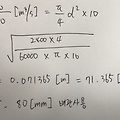 [m³/s] = π/4 d² × 10
√(2800 × 4 / 60000 × π × 10)
= 0.071365 [m] = 71.365 [
80 [mm]